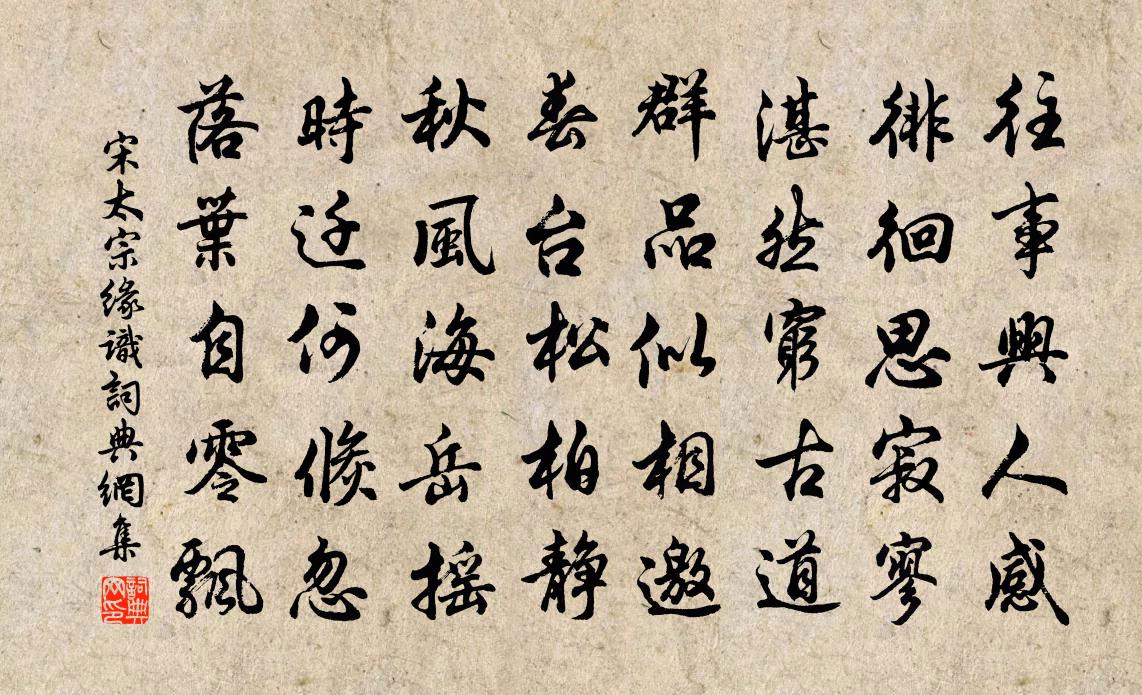 往事興人感
徘徊思寂寥
湛然窮古道
群品似相邀
春台松柏静
秋風海岳摇
時迁何倏忽
落葉自零飄
宋太宗緣識詞典網集
詞典网印